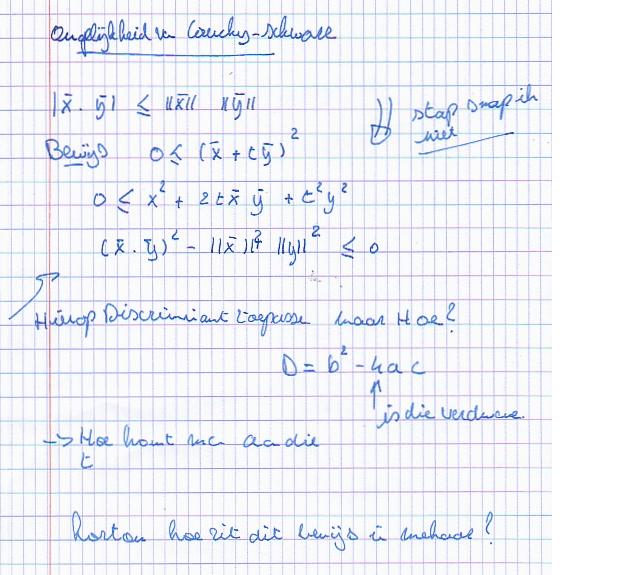 Ongelijkheid van Cauchy-Schwarz
|x̄ . ȳ| ≤ ||x̄|| ||ȳ||
stap snap ik
niet
Bewijs 0 ≤ (x̄ + tȳ)²
0 ≤ x² + 2t x̄ ȳ + t² y²
(x̄ . ȳ)² - ||x̄||² ||y||² ≤ 0
Hierop Discriminant toepassen maar Hoe?
D = b² - 4ac
is die verdwenen
-> Hoe komt men aan die
t
kortom hoe zit dit bewijs in mekaar?